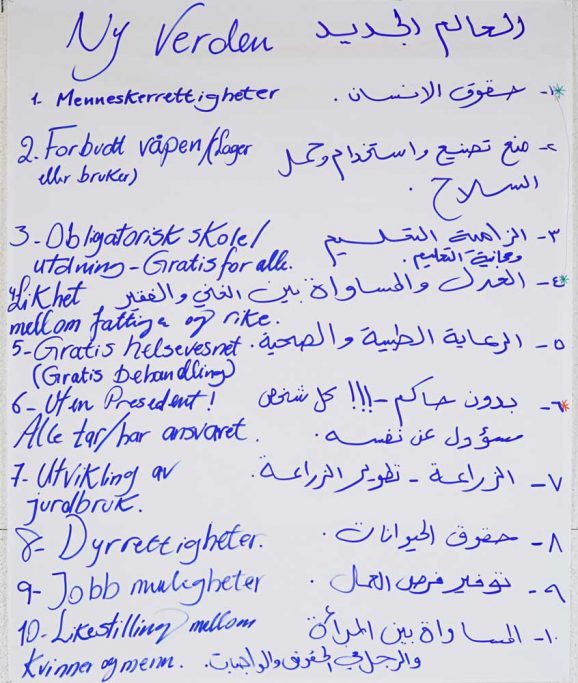 Ny Verden العالم الجديد
1- Menneskerrettigheter
١- حقوق الانسان .
2. Forbudt våpen/(Lager
eller bruker)
٢- منع تصنيع واستخدام وحمل
السلاح .
3- Obligatorisk skole/
utdning - Gratis for alle.
٣- الزامية التعليم
ومجانية التعليم .
4 Likhet
mellom fattige og rike.
٤- العدل والمساواة بين الغني والفقير
5- Gratis helsevesnet.
(Gratis behandling)
٥- الرعاية الطبية والصحية
6- Uten President!
Alle tar/har ansvaret.
٦- بدون حاكم -!!! كل شخص
مسؤول عن نفسه .
7- Utvikling av
jurdbruk.
٧- الزراعة - تطوير الزراعة .
8- Dyrrettigheter.
٨- حقوق الحيوانات .
9- Jobb muligheter
٩- توفير فرص العمل .
10- Likestilling mellom
kvinner og menn.
١٠- المساواة بين المرأة
والرجل في الحقوق والواجبات .